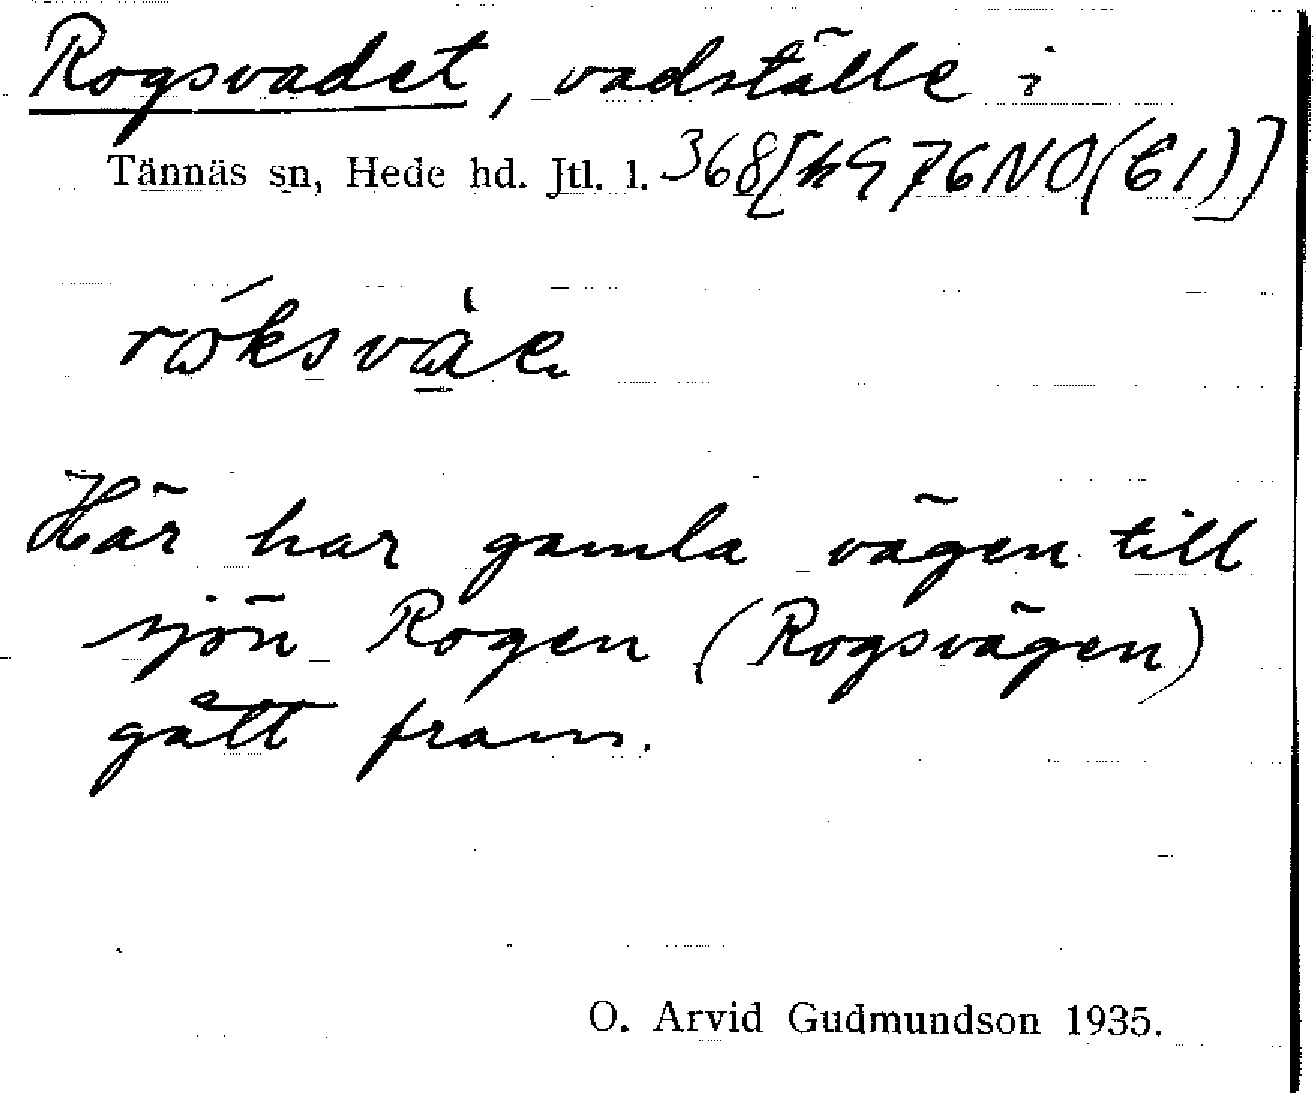 Rogsvadet, vadställe i
Tännäs sn, Hede hd. Jtl. l. 368 [kg 76NO(61)]
Här har gamla vägen till
sjön Rogen (Rogsvägen)
gått fram.
O. Arvid Gudmundson 1935.